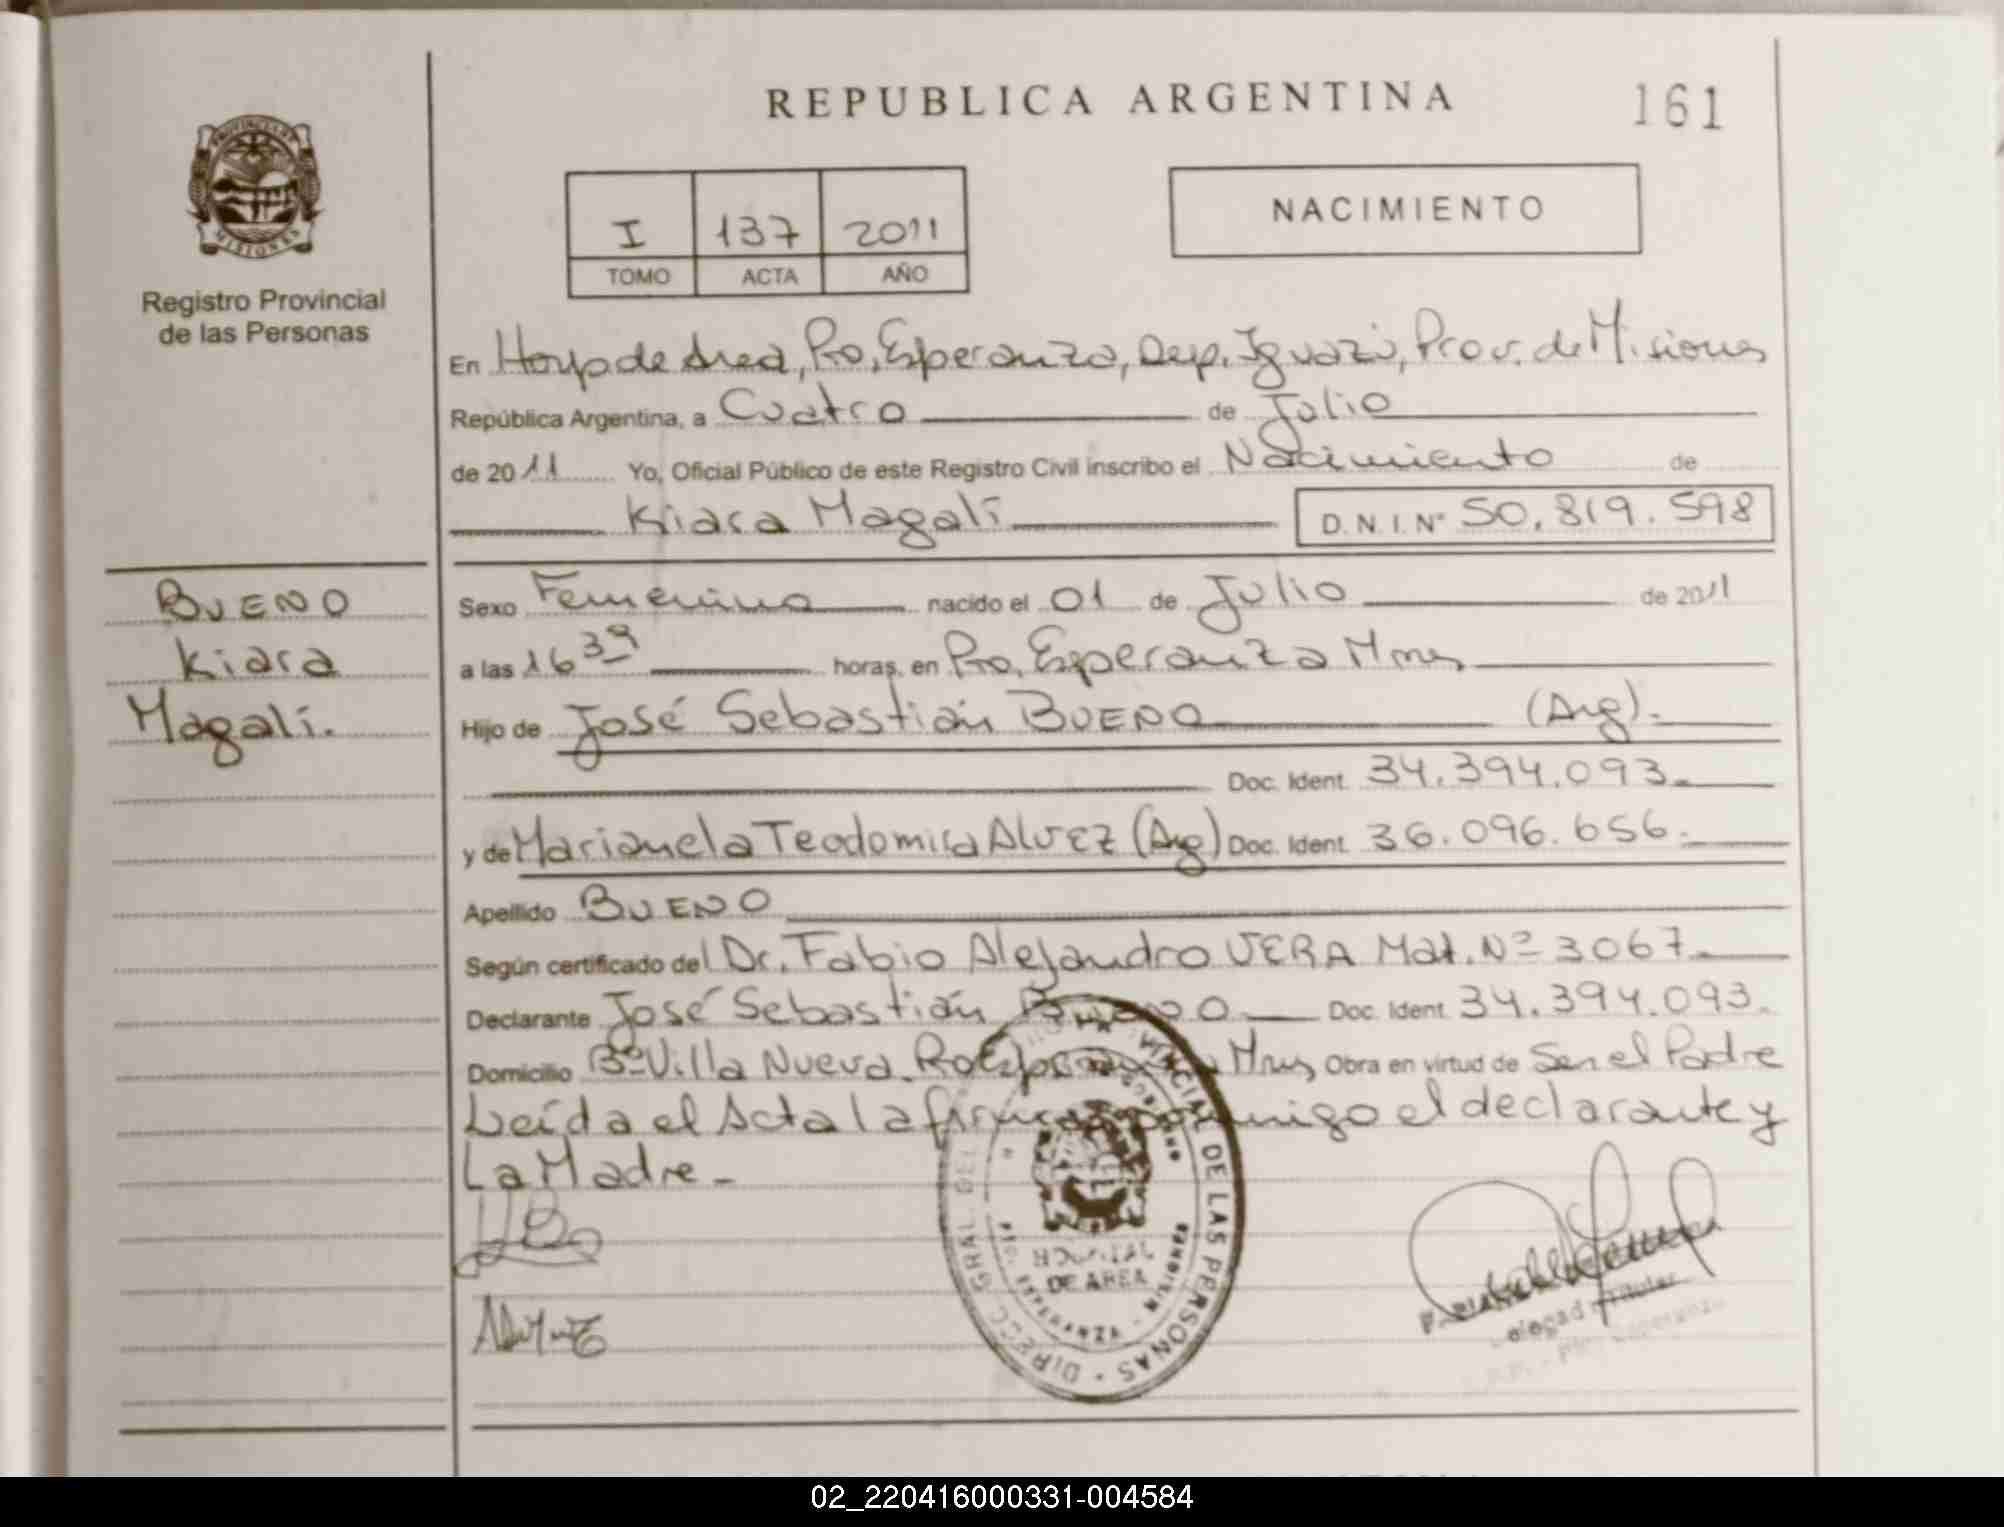 REPUBLICA ARGENTINA
161
PROVINCIA DE
MISIONES
Registro Provincial
de las Personas
I 137 2011
TOMO ACTA AÑO
NACIMIENTO
En Hosp de Area, Pto. Esperanza, Dep. Iguazú, Prov. de Misiones
República Argentina, a Cuatro de Julio
de 2011 Yo, Oficial Público de este Registro Civil inscribo el Nacimiento de
Kiara Magalí D.N.I. Nº 50.819.598
BUENO
Kiara
Magalí.
Sexo Femenino nacido el 01 de Julio de 2011
a las 16 39 horas, en Pto. Esperanza Mnes
Hijo de José Sebastián BUENO (Arg).
Doc. Ident. 34.394.093.
y de Marianela Teodomira Alvez (Arg) Doc. Ident. 36.096.656.
Apellido BUENO
Según certificado del Dr. Fabio Alejandro VERA Mat. Nº 3067.
Declarante José Sebastián Bueno Doc. Ident. 34.394.093.
Domicilio Bº Villa Nueva. Pto Esperanza Mnes Obra en virtud de Ser el Padre
Leída el Acta la firman conmigo el declarante y
La Madre.-
DIRECC. GRAL. DEL DE LAS PERSONAS
HOSPITAL
DE AREA
ESPERANZA - MISIONES
02_220416000331-004584